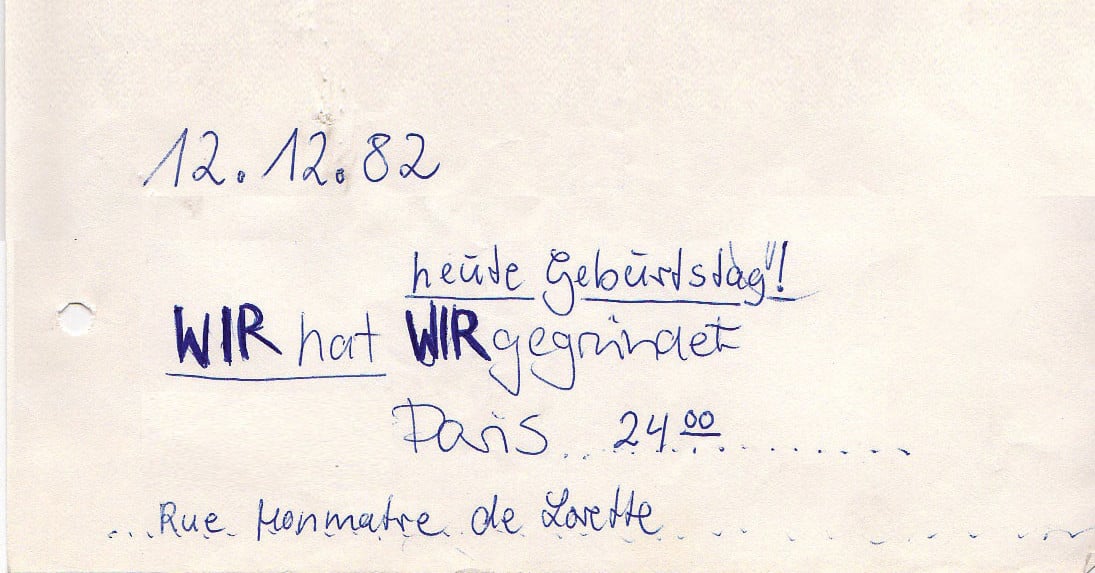 12.12.82
heute Geburtstag!
WIR hat WIR gegründet
Paris... 24 00..........
...Rue Monmatre de Lorette